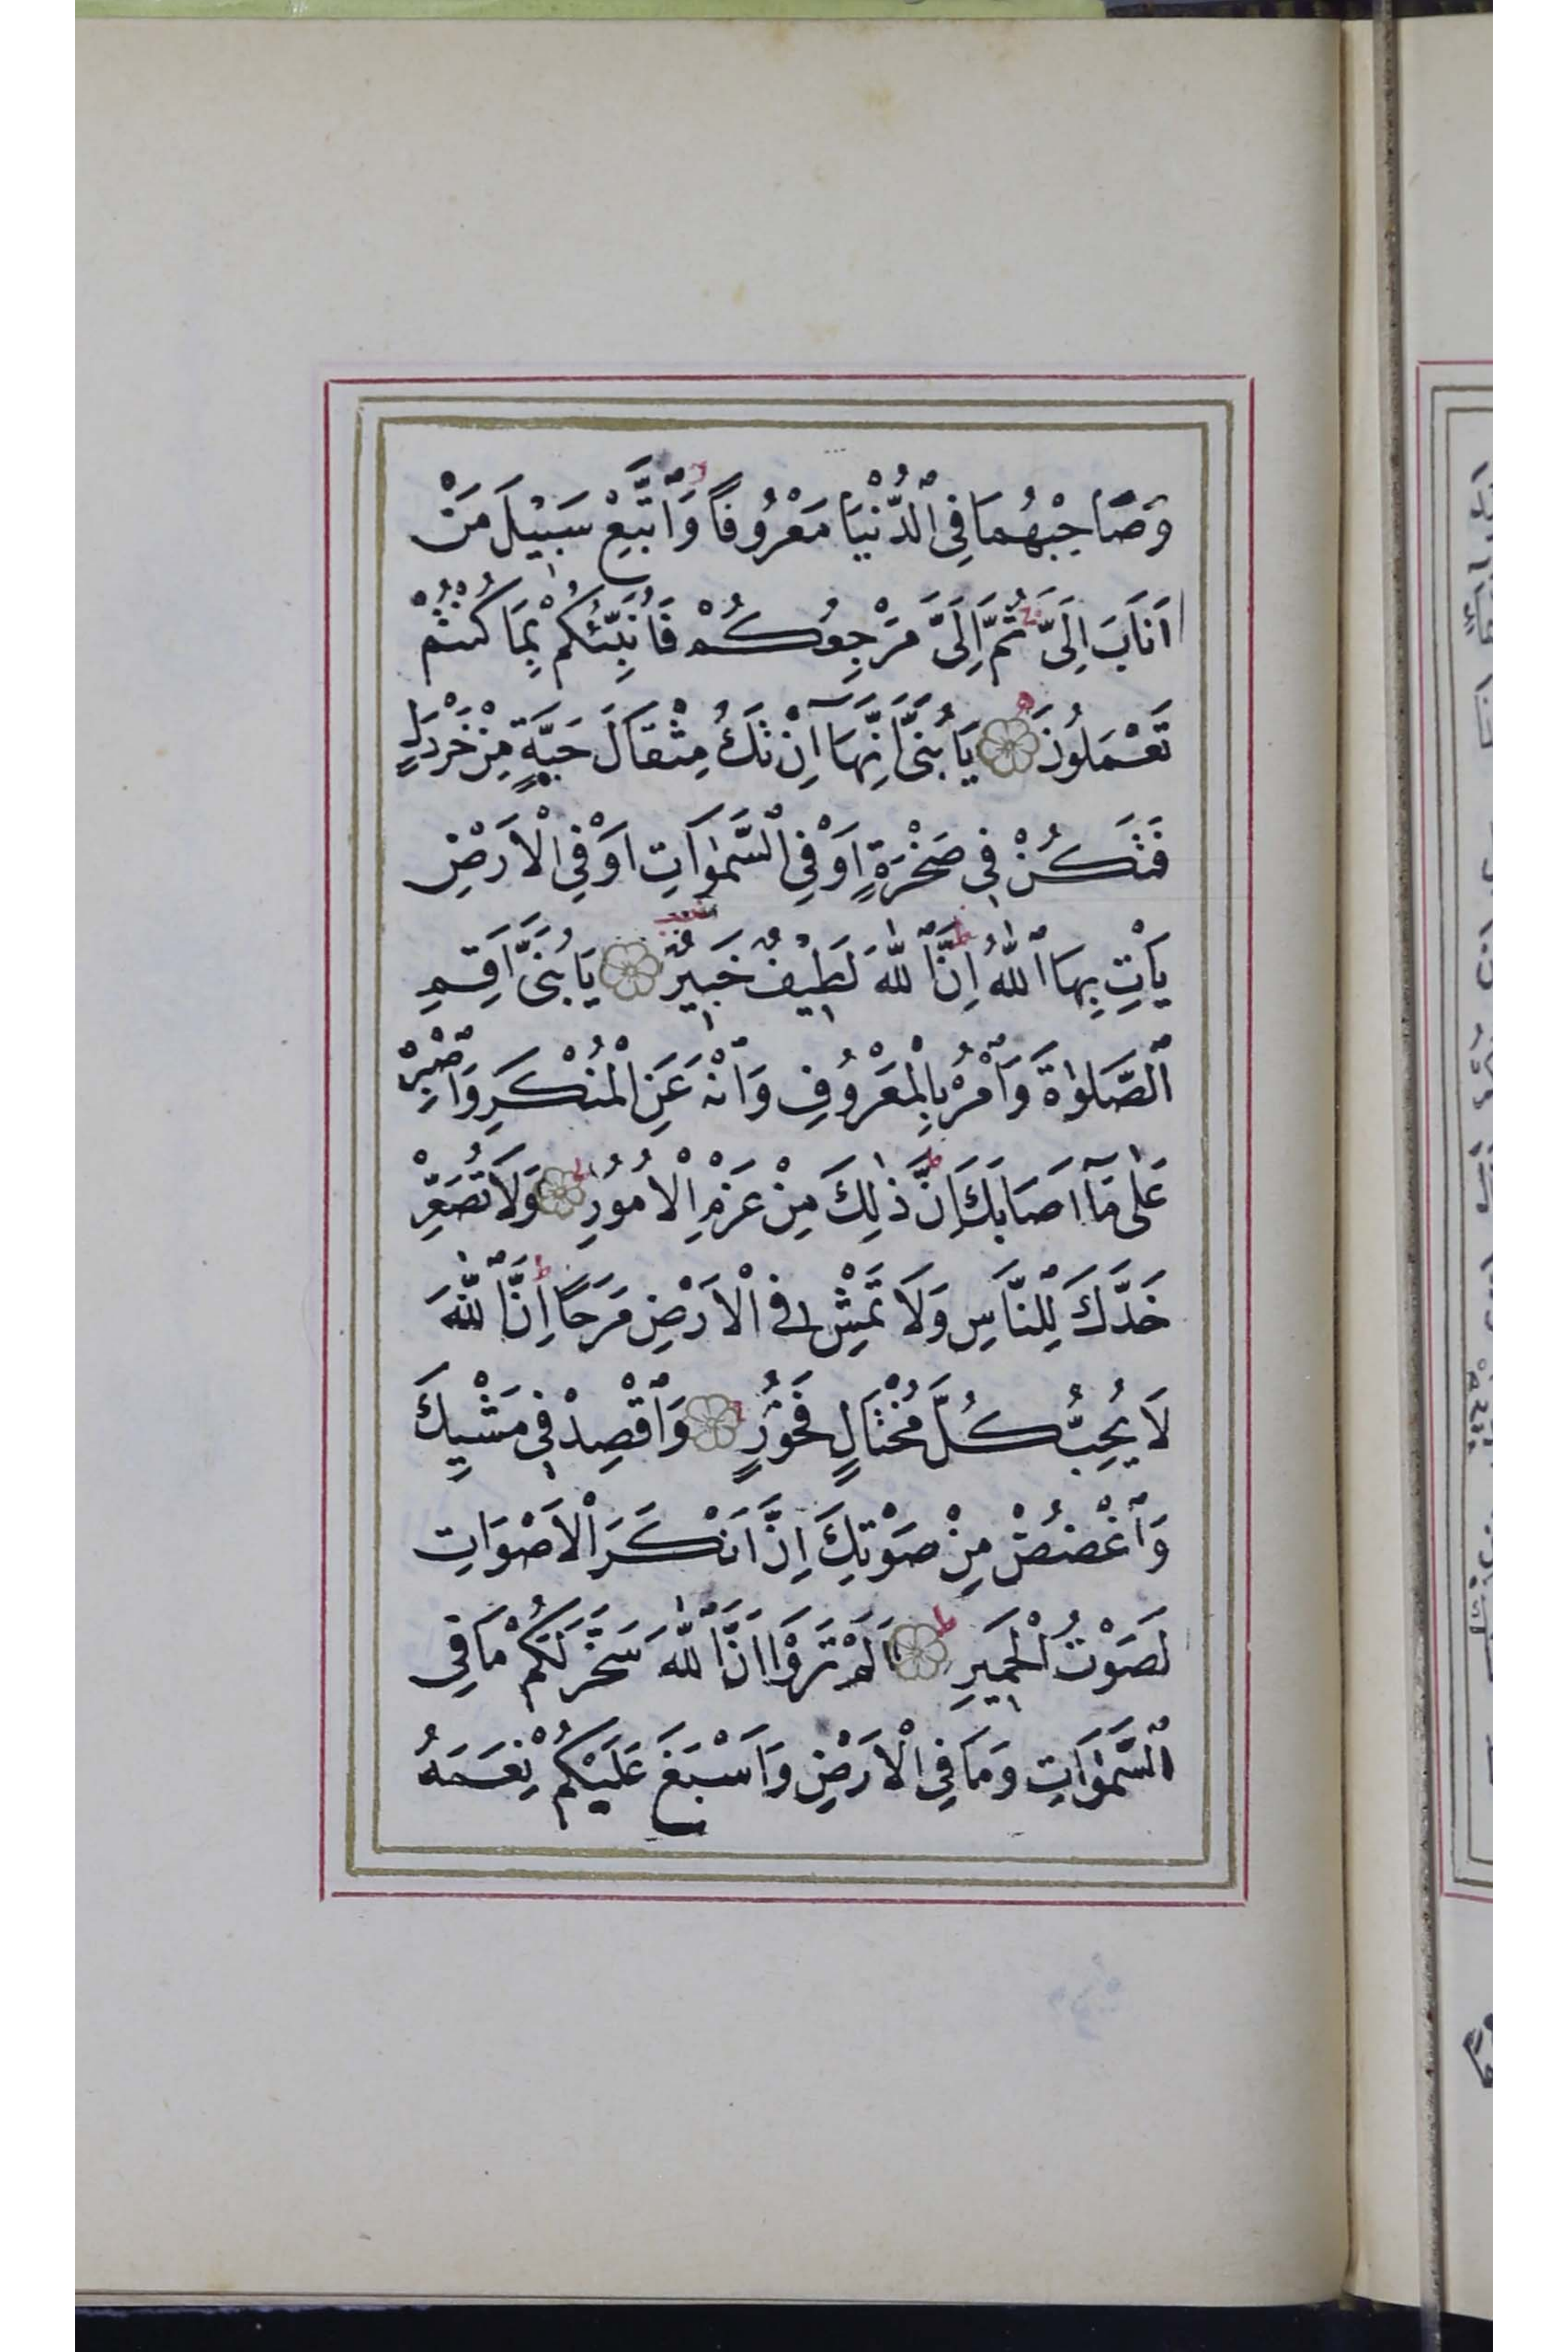 وَصَاحِبْهُمَا فِى ٱلدُّنْيَا مَعْرُوفًا وَٱتَّبِعْ سَبِيلَ مَنْ
اَنَابَ اِلَىَّ ثُمَّ اِلَىَّ مَرْجِعُكُمْ فَاُنَبِّئُكُمْ بِمَا كُنْتُمْ
تَعْمَلُونَ يَا بُنَىَّ اِنَّهَآ اِنْ تَكُ مِثْقَالَ حَبَّةٍ مِنْ خَرْدَلٍ
فَتَكُنْ فِى صَخْرَةٍ اَوْ فِى ٱلسَّمٰوَاتِ اَوْ فِى الْاَرْضِ
يَاْتِ بِهَا ٱللّٰهُ اِنَّ ٱللّٰهَ لَطِيفٌ خَبِيرٌ يَا بُنَىَّ اَقِمِ
ٱلصَّلٰوةَ وَاْمُرْ بِالْمَعْرُوفِ وَٱنْهَ عَنِ الْمُنْكَرِ وَٱصْبِرْ
عَلٰى مَآ اَصَابَكَ اِنَّ ذٰلِكَ مِنْ عَزْمِ الْاُمُورِ وَلَا تُصَعِّرْ
خَدَّكَ لِلنَّاسِ وَلَا تَمْشِ فِى الْاَرْضِ مَرَحًا اِنَّ ٱللّٰهَ
لَا يُحِبُّ كُلَّ مُخْتَالٍ فَخُورٍ وَٱقْصِدْ فِى مَشْيِكَ
وَٱغْضُضْ مِنْ صَوْتِكَ اِنَّ اَنْكَرَ الْاَصْوَاتِ
لَصَوْتُ الْحَمِيرِ اَلَمْ تَرَوْا اَنَّ ٱللّٰهَ سَخَّرَ لَكُمْ مَا فِى
ٱلسَّمٰوَاتِ وَمَا فِى الْاَرْضِ وَاَسْبَغَ عَلَيْكُمْ نِعَمَهُ